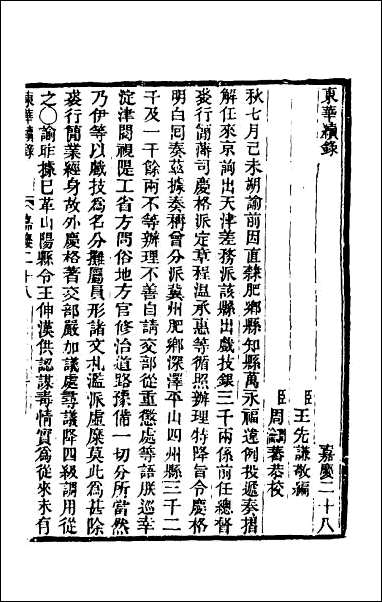 東華續錄
嘉慶二十八
臣王先謙敬編
臣周潤蕃恭校
秋七月己未朔諭前因直隸肥鄉縣知縣萬永福違例投遞奏摺
解任來京詢出天津差務派該縣出戲技銀三千兩係前任總督
裘行簡藩司慶格派定章程溫承惠等循照辦理特降旨令慶格
明白回奏茲據奏稱曾分派冀州肥鄉深澤平山四州縣三千二
千及一千餘兩不等辦理不善自請交部從重懲處等語朕巡幸
淀津閱視隄工省方問俗地方官修治道路豫備一切分所當然
乃伊等以戲技為名分攤屬員形諸文札濫派虛糜莫此為甚除
裘行簡業經身故外慶格著交部嚴加議處尋議降四級調用從
之○諭昨據已革山陽縣令王伸漢供認謀毒情實為從來未有
東華續錄
嘉慶二十八